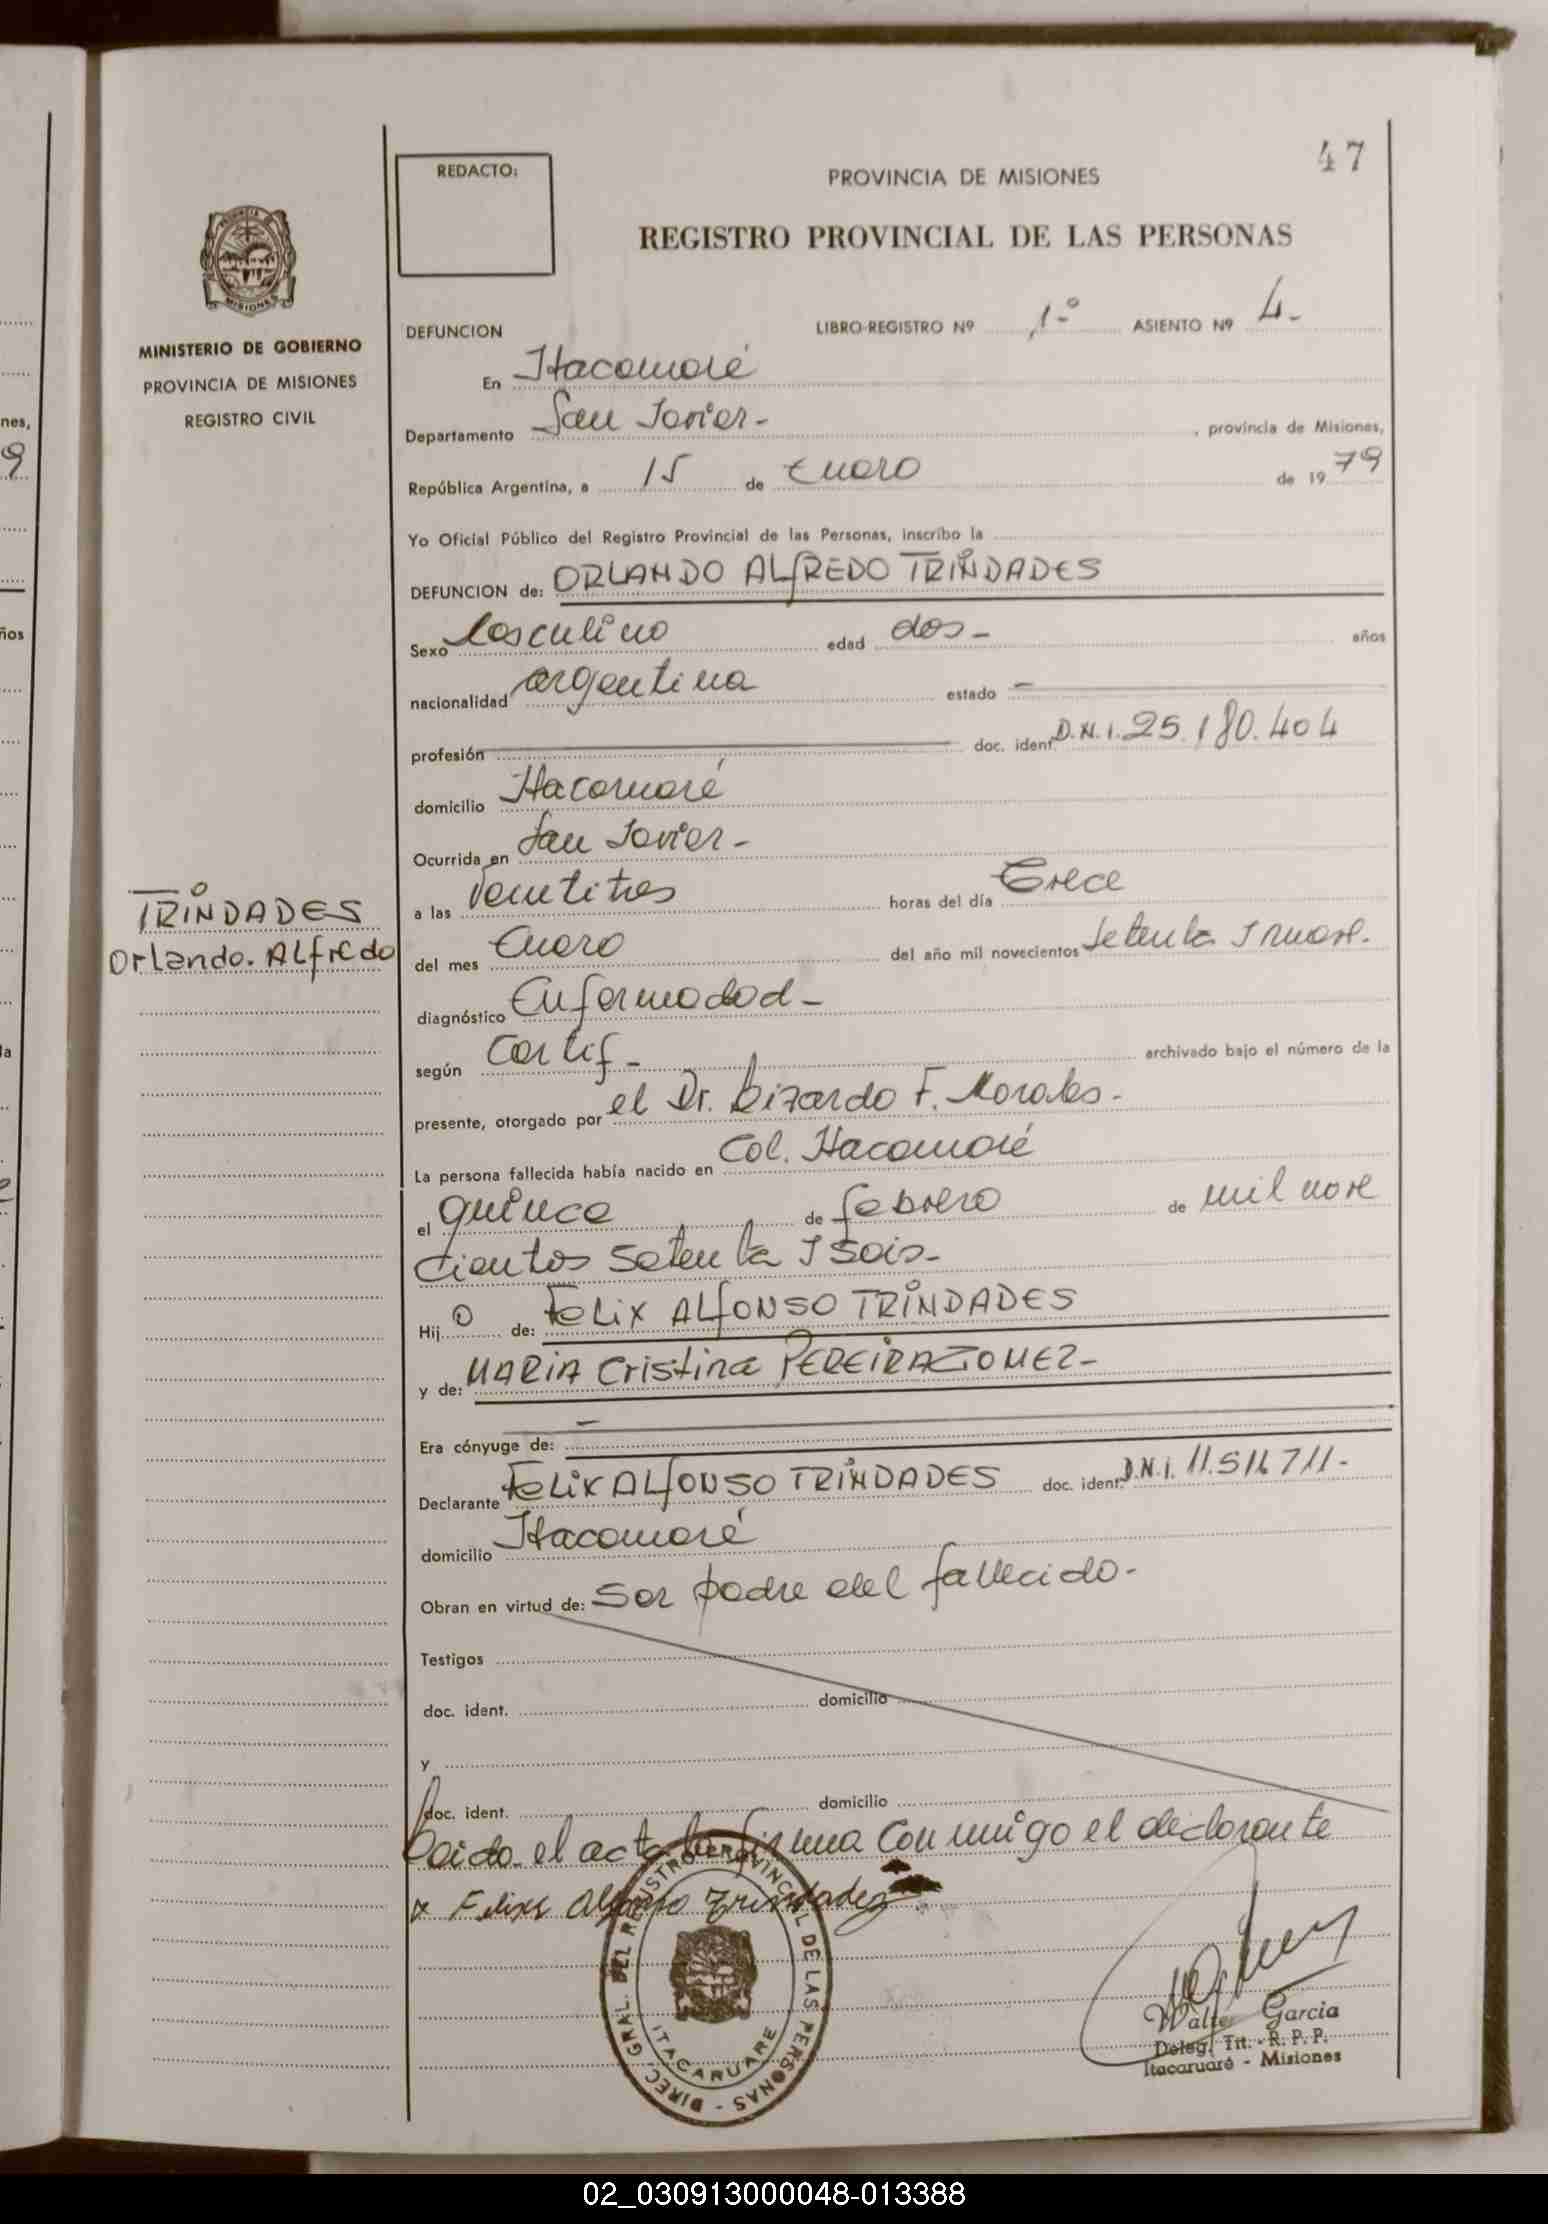 47
REDACTO:
PROVINCIA DE MISIONES
REGISTRO PROVINCIAL DE LAS PERSONAS
MISIONES
MINISTERIO DE GOBIERNO
PROVINCIA DE MISIONES
REGISTRO CIVIL
DEFUNCION LIBRO-REGISTRO Nº 1º ASIENTO Nº 4-
En Itacaruaré
Departamento San Javier- , provincia de Misiones,
República Argentina, a 15 de Enero de 1979
Yo Oficial Público del Registro Provincial de las Personas, inscribo la
DEFUNCION de: ORLANDO ALFREDO TRINDADES
Sexo Masculino edad dos- años
nacionalidad argentina estado -
profesión doc. ident. D.N.I. 25.180.404
domicilio Itacaruaré
Ocurrida en San Javier-
a las veintitres horas del día Trece
TRINDADES
Orlando. ALfredo
del mes Enero del año mil novecientos setenta y nueve.
diagnóstico Enfermedad-
según Certif- archivado bajo el número de la
presente, otorgado por el Dr. Lizardo F. Morales-
La persona fallecida había nacido en Col. Itacaruaré
el quince de febrero de mil nove
cientos setenta y seis-
Hijo de: FELIX ALFONSO TRINDADES
y de: MARIA Cristina PEREIRA GOMEZ-
Era cónyuge de: -
Declarante FELIX ALFONSO TRINDADES doc. ident. D.N.I. 11.514711-
domicilio Itacaruaré
Obran en virtud de: ser padre del fallecido-
Testigos
doc. ident. domicilio
y
doc. ident. domicilio
Leido el acta la firma conmigo el declarante
x Felixs Alfonso Trindadez
DIREC. GRAL. DEL REGISTRO PROVINCIAL DE LAS PERSONAS -
ITACARUARE
Walter Garcia
Deleg. Tit. - R. P. P.
Itacaruaré - Misiones
nes,
9
ños
la
02_030913000048-013388